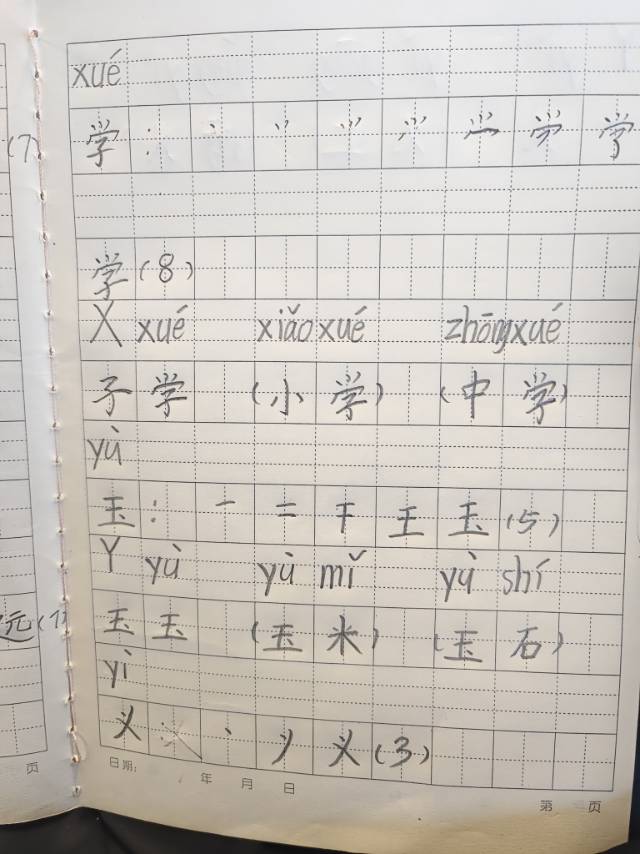 xué
学：丶 ⺀ ⺍ 学
(7)
学(8)
X xué xiǎo xué zhōng xué
子 学 (小 学) (中 学)
yù
玉： 一 二 干 王 玉 (5)
Y yù yù mǐ yù shí
玉 玉 (玉 米) (玉 石)
元(1)
yì
义： 丶 义 (3)
日期： 年 月 日
第 页
页